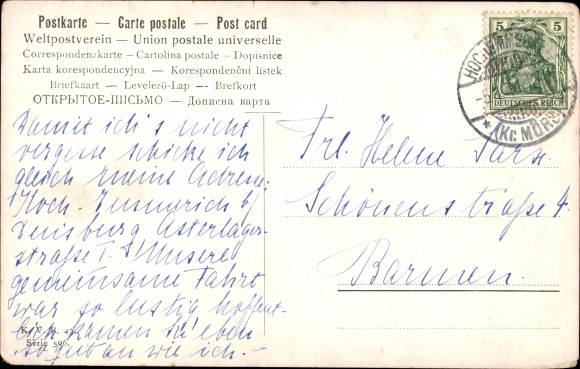 Postkarte — Carte postale — Post card
Weltpostverein — Union postale universelle
Correspondenzkarte — Cartolina postale — Dopisnice
Karta korespondencyjna — Korespondenční lístek
Briefkaart — Levelező-Lap — Brefkort
ОТКРЫТОЕ-ПИСЬМО — Дописна карта
5 5
DEUTSCHES REICH
(Kr. MÖRS)
Damit ich's nicht
vergesse schicke ich
gleich meine Adresse:
Hoch-Emmerich b/
Duisburg Asterlager-
straße 1. Unsere
gemeinsame Fahrt
war so lustig hoffent-
lich kamen Sie eben
so gut an wie ich. –
Serie 596.
Frl. Helene
Schönenstraße 4.
Barmen.